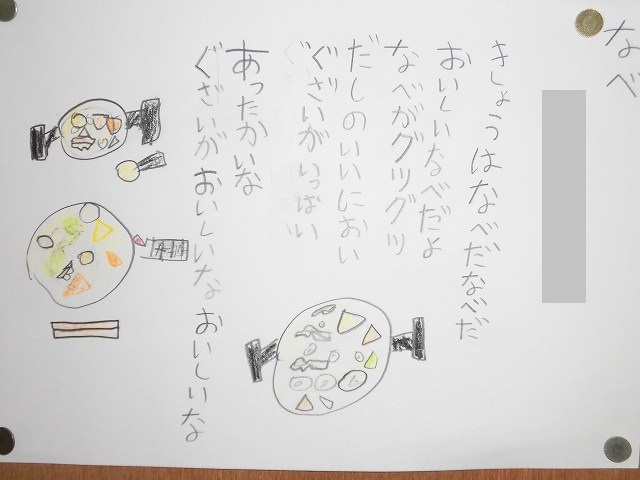 なべ
きしょうはなべだなべだ
おいしいなべだよ
なべがグツグツ
だしのいいにおい
ぐざいがいっぱい
あったかいな
ぐざいがおいしいな おいしいな